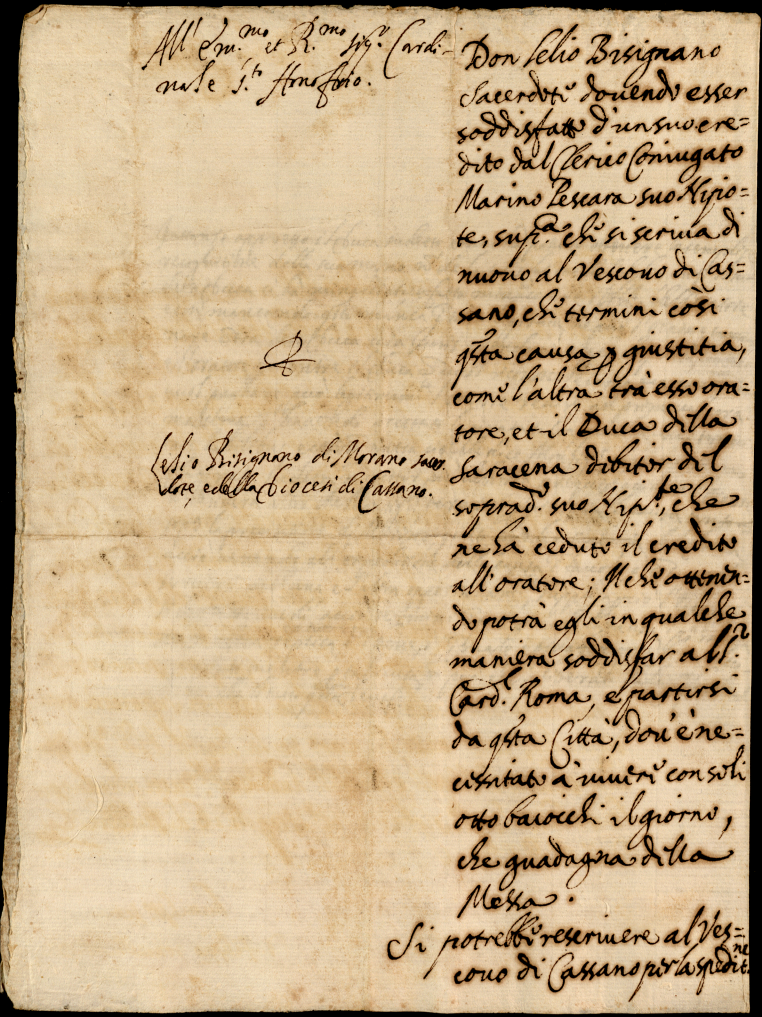 All' Em.mo et R.mo Sig.r Cardi-
nale S.to Honofrio.
Lelio Bisignano di Morano sacer-
dote, e della Diocesi di Cassano.
Don Lelio Bisignano
sacerdote douendo esser
soddisfatto d'un suo cre=
dito dal Clerico Coniugato
Marino Pescara suo Nipo=
te, sup.ca che si scriua di
nuouo al Vescouo di Cas=
sano, che termini così
q'sta causa p giustitia,
come l'altra trà esso ora=
tore, et il Duca della
Saracena debitor del
soprad.o suo Nip.te, che
ne hà ceduto il credito
all'oratore; Il che ottenen=
do potrà egli in qualche
maniera soddisfar all'
Card.l Roma, e partirsi
da q'sta Città, dou'è ne=
cessitato à viuere con soli
otto baiocchi il giorno,
che guadagna della
Messa.
Si potrebbe rescriuere al Ves=
couo di Cassano per la spedit.ne